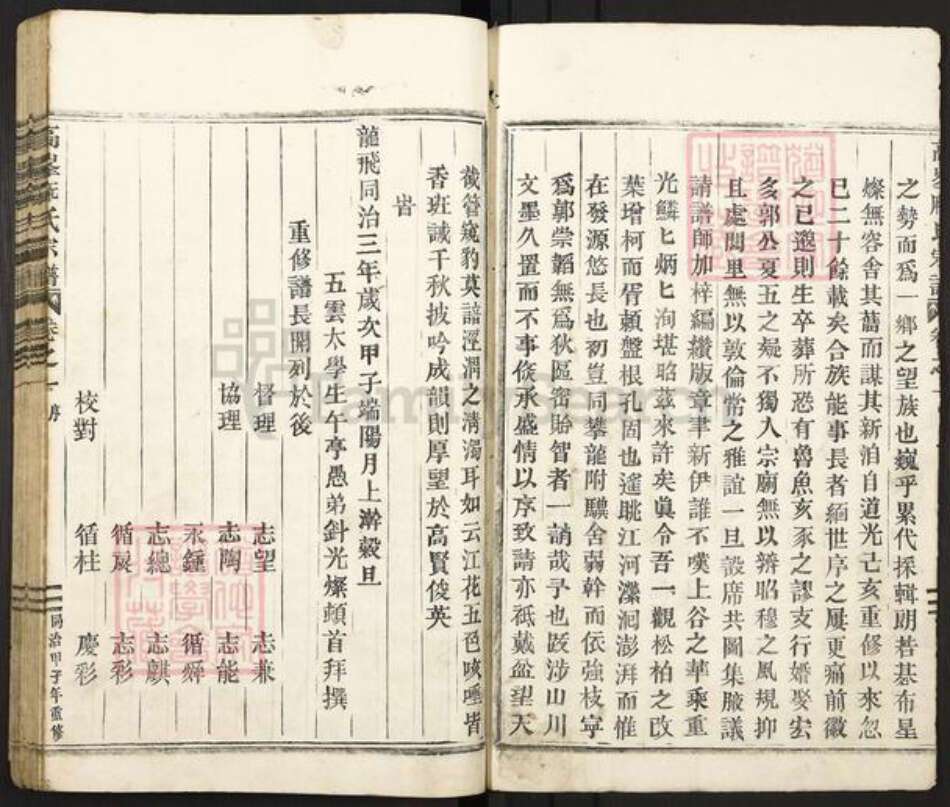 之勢而爲一鄉之望族也巍乎累代採輯朗若碁布星
燦無容舍其舊而謀其新洎自道光己亥重修以來忽
已二十餘載矣合族能事長者緬世序之屢更痛前徽
之已邈則生卒葬所恐有魯魚亥豕之謬支行婚娶宏
多郭公夏五之疑不獨入宗廟無以辨昭穆之風規抑
且處閭里無以敦倫常之雅誼一旦設席共圖集腋議
請譜師加梓編纘版章聿新伊誰不嘆上谷之華乘重
光麟匕炳匕洵堪昭茲來許矣眞令吾一觀松柏之改
葉增柯而胥賴盤根孔固也遙眺江河瀠洄澎湃而惟
在發源悠長也初豈同攀龍附驥舍弱幹而依強枝寧
爲郭崇韜無爲狄區密貽智者一誚哉予也跋涉山川
文墨久置而不事倐承盛情以序致請亦祇戴盆望天
截管窺豹莫諳涇渭之淸濁耳如云江花五色咳唾皆
香班誠千秋披吟成韻則厚望於高賢俊英
旹
龍飛同治三年歲次甲子端陽月上澣穀旦
五雲太學生午亭愚弟針光燦頓首拜撰
重修譜長開列於後
督理 志望 志兼
協理 志陶 志能
永鍾 循舜
志總 志麒
循宸 志彩
校對 循桂 慶彩
氏宗譜 卷之一 序
同治甲子年重修
Family Search